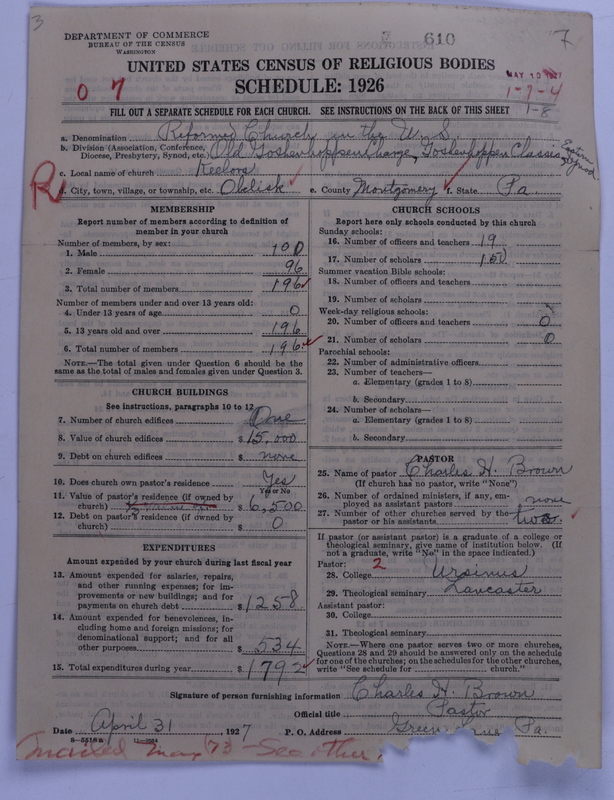 3
DEPARTMENT OF COMMERCE
BUREAU OF THE CENSUS
WASHINGTON
610
7
UNITED STATES CENSUS OF RELIGIOUS BODIES
SCHEDULE: 1926
MAY 10 1927
0 7
1-7-4
1-8
FILL OUT A SEPARATE SCHEDULE FOR EACH CHURCH. SEE INSTRUCTIONS ON THE BACK OF THIS SHEET
a. Denomination Reformed Church in the U.S.
b. Division (Association, Conference, Diocese, Presbytery, Synod, etc.) Old Goshenhoppen Charge, Goshenhoppen Classis, Eastern Synod
c. Local name of church Keelors
R
d. City, town, village, or township, etc. Obelisk e. County Montgomery f. State Pa
MEMBERSHIP
Report number of members according to definition of
member in your church
Number of members, by sex:
1. Male 100
2. Female 96
3. Total number of members 196
Number of members under and over 13 years old:
4. Under 13 years of age 0
5. 13 years old and over 196
6. Total number of members 196
NOTE.—The total given under Question 6 should be
same as the total of males and females given under Question 3.
CHURCH BUILDINGS
See instructions, paragraphs 10 to 12
7. Number of church edifices One
8. Value of church edifices $15,000
9. Debt on church edifices $ none
10. Does church own pastor's residence Yes
Yes or No
11. Value of pastor's residence (if owned by
church) $6,500
12. Debt on pastor's residence (if owned by
church) $ 0
EXPENDITURES
Amount expended by your church during last fiscal year
13. Amount expended for salaries, repairs,
and other running expenses; for im-
provements or new buildings; and for
payments on church debt $1258
14. Amount expended for benevolences, in-
cluding home and foreign missions; for
denominational support; and for all
other purposes $ 534
15. Total expenditures during year $1792
CHURCH SCHOOLS
Report here only schools conducted by this church
Sunday schools:
16. Number of officers and teachers 19
17. Number of scholars 150
Summer vacation Bible schools:
18. Number of officers and teachers
19. Number of scholars
Week-day religious schools:
20. Number of officers and teachers 0
21. Number of scholars 0
Parochial schools:
22. Number of administrative officers
23. Number of teachers—
a. Elementary (grades 1 to 8)
b. Secondary
24. Number of scholars—
a. Elementary (grades 1 to 8)
b. Secondary
PASTOR
25. Name of pastor Charles H. Brown
(If church has no pastor, write "None")
26. Number of ordained ministers, if any, em-
ployed as assistant pastors none
27. Number of other churches served by the
pastor or his assistants two
If pastor (or assistant pastor) is a graduate of a college or
theological seminary, give name of institution below. (If
not a graduate, write "No" in the space indicated.)
Pastor: 2
28. College Ursinus
29. Theological seminary Lancaster
Assistant pastor:
30. College
31. Theological seminary
NOTE.—Where one pastor serves two or more churches,
Questions 28 and 29 should be answered only on the schedule
for one of the churches; on the schedules for the other churches,
write "See schedule for church."
Signature of person furnishing information Charles H. Brown
Official title Pastor
Date April 31 1927 P. O. Address Green Pa.
8-5518a 11-9554